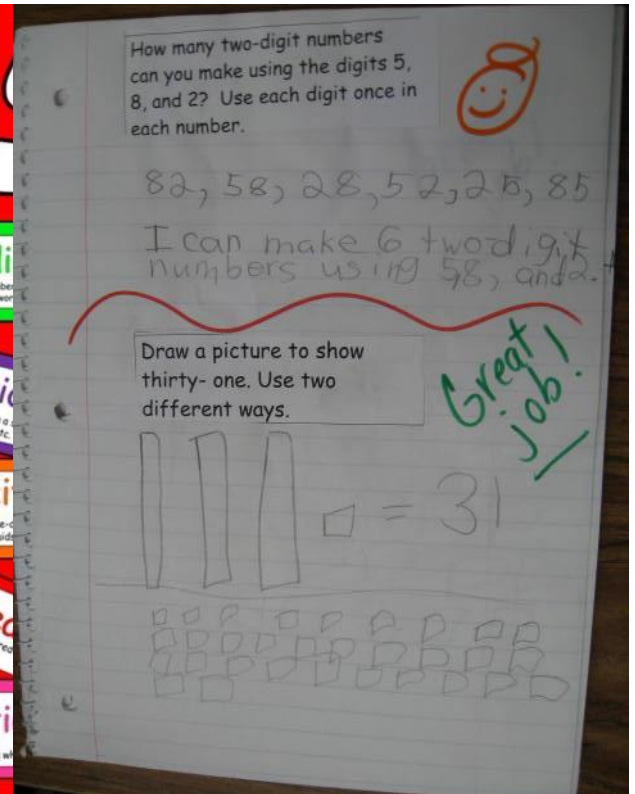 How many two-digit numbers
can you make using the digits 5,
8, and 2? Use each digit once in
each number.
82, 58, 28, 52, 25, 85
I can make 6 two digit
numbers using 5,8, and 2.
Draw a picture to show
thirty- one. Use two
different ways.
Great
job!
= 31